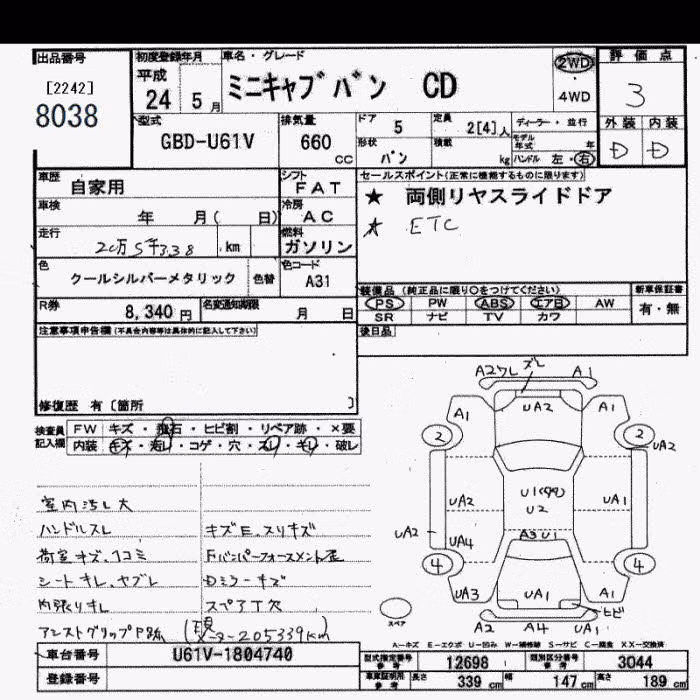 出品番号
[2242]
8038
初度登録年月
平成
24 5 月
車名・グレード
ミニキャブバン CD
2WD
4WD
評価点
3
外装 内装
D D
型式
GBD-U61V
排気量
660
CC
ドア
5
定員
2[4]人
形状
バン
積載
kg
ディーラー・並行
モデル年式 年
ハンドル 左・右
車歴
自家用
シフト
FAT
セールスポイント(正常に機能するものに限ります)
★ 両側リヤスライドドア
★ ETC
車検
年 月( 日)
冷房
AC
走行
20万5千338 km
燃料
ガソリン
色
クールシルバーメタリック
色替
色コード
A31
装備品 (純正品に限り○をつけてください)
PS PW ABS エアB AW
SR ナビ TV カワ
新車保証書
有・無
R券
8,340 円
名変通知期限
月 日
後日品
注意事項申告欄(不具合内容等は具体的に記入して下さい)
修復歴 有[箇所 ]
検査員記入欄
FW キズ・飛石・ヒビ割・リペア跡・×要
内装 キズ・汚レ・コゲ・穴・スレ・キレ・破レ
室内汚レ大
ハンドルスレ
荷室キズ、凹コミ
シートキレ、ヤブレ
内張りキレ
アシストグリップP跡
キズE、スリキズ
Fバンパーフォースメント歪
Dミラーキズ
スペアT欠
(現メーター205339km)
A2ワレ ズレ A1
A1 UA2 A1
2 2 UA2
UA2 U1(99) UA1
U2
UA2 UA4 A3 U1
4 4
UA3 UA1 A1
ヒビ
A2 A4 UA1
スペア
A-キズ E-エクボ U-凹み W-補修跡 S-サビ C-腐食 XX-交換済
車台番号 U61V-1804740
登録番号
型式指定番号 参考 12698 類別区分番号 参考 3044
車庫証明用 参考 長さ 339 cm 幅 147 cm 高さ 189 cm